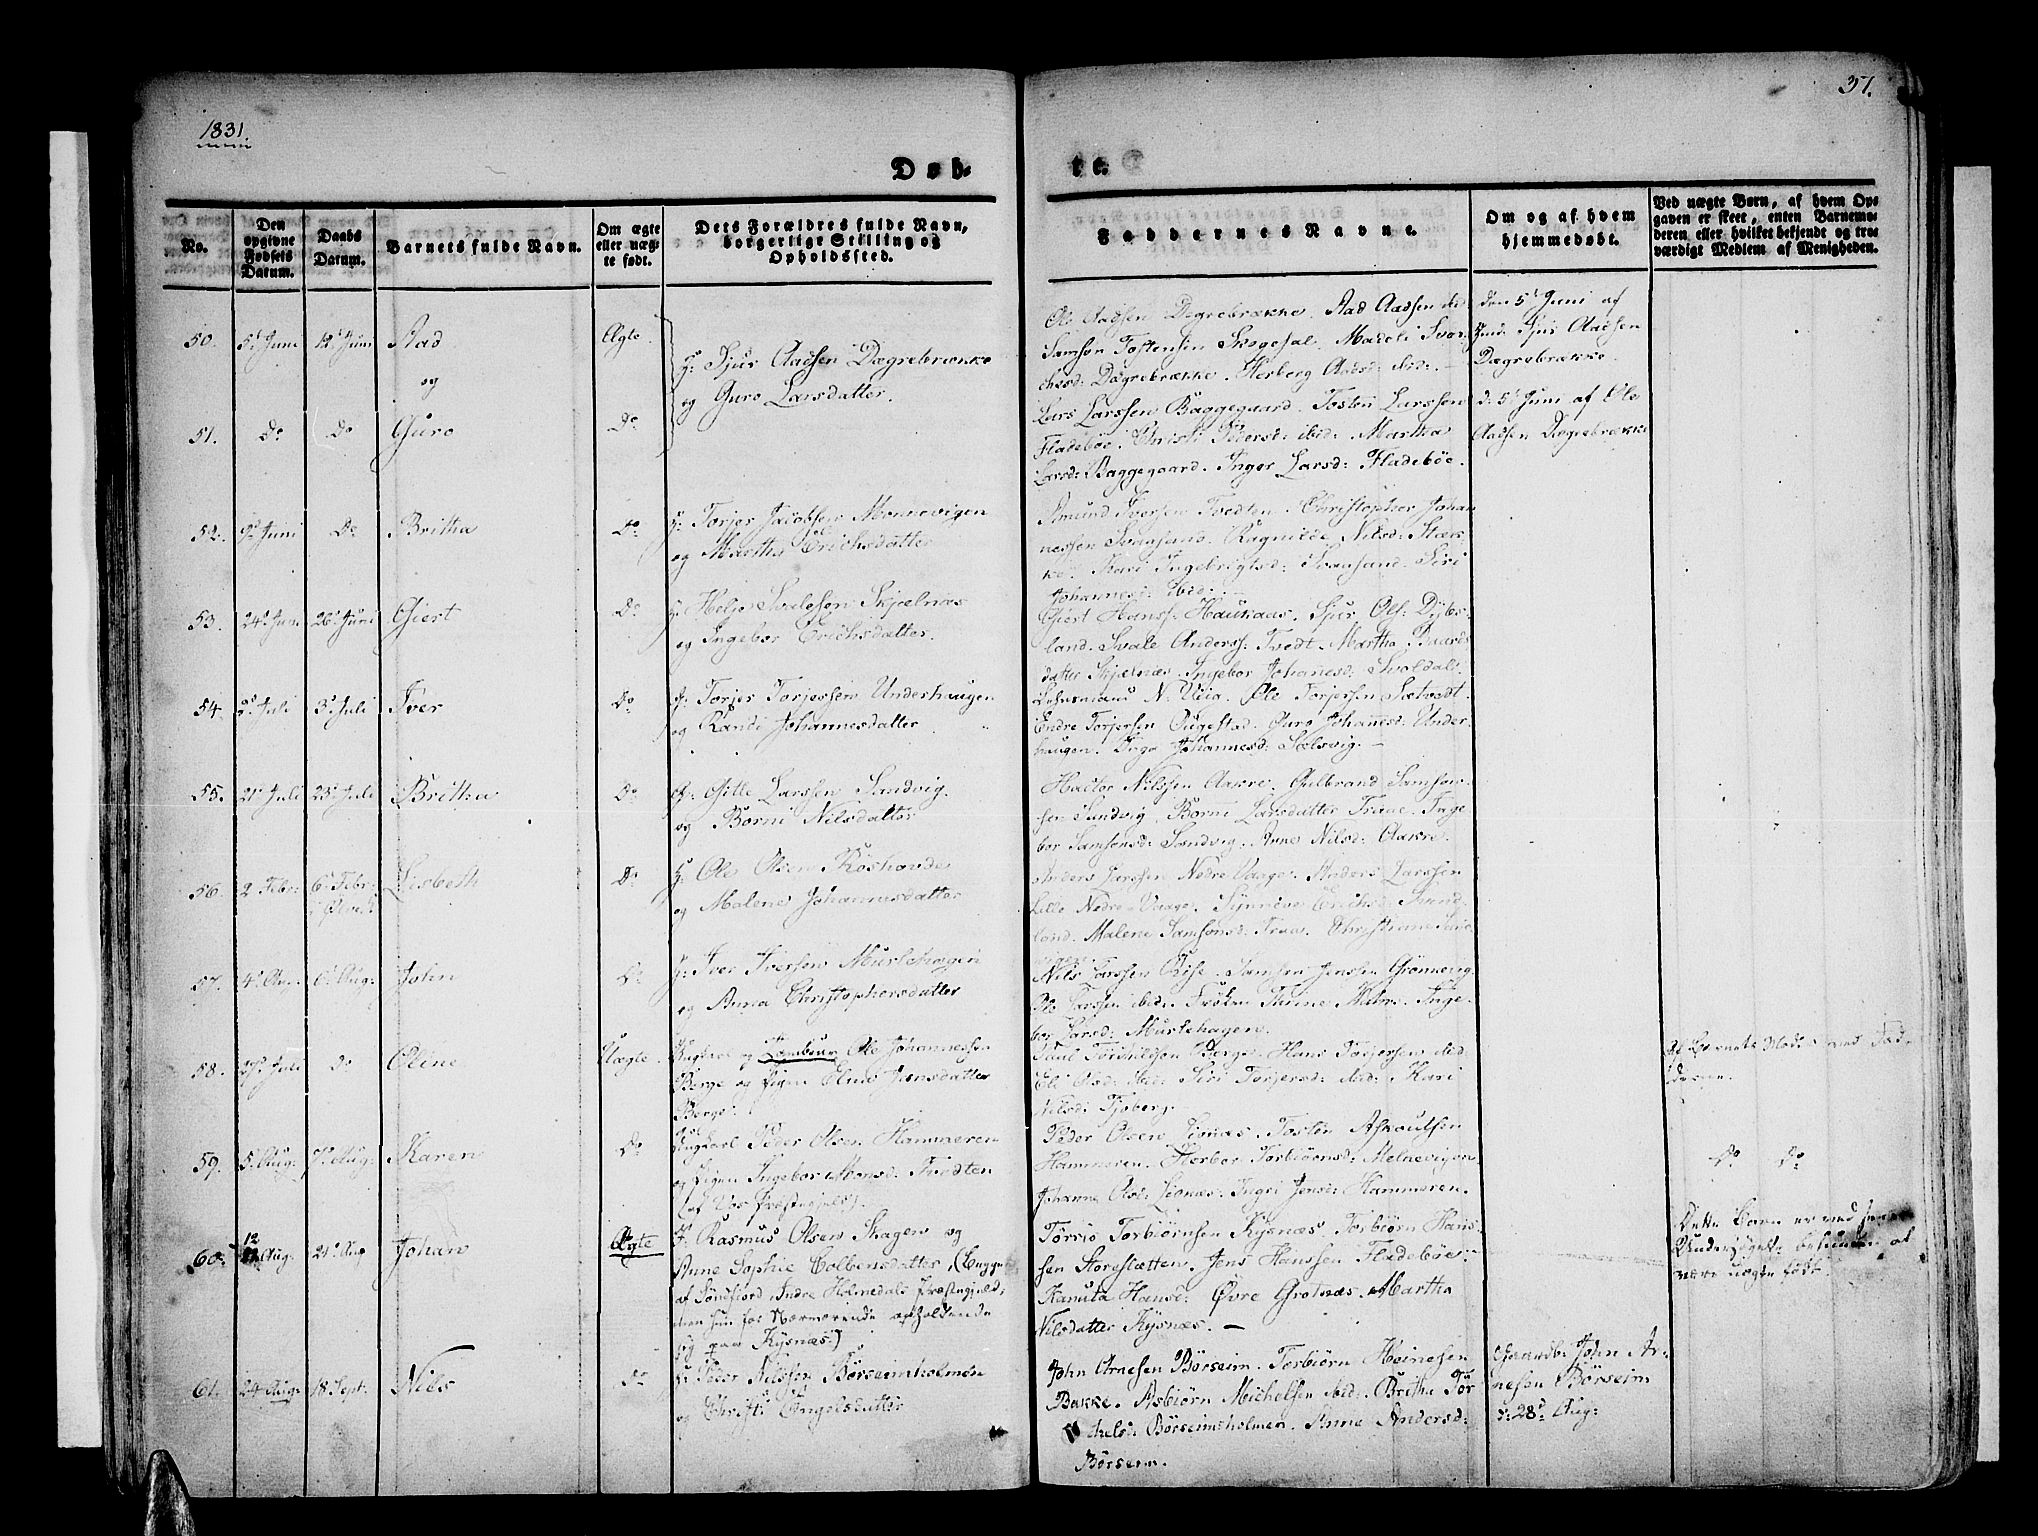 1831.
37.
Døb-
te.
No.
Den opgivne Fødsels Datum.
Daabs Datum.
Barnets fulde Navn.
Om ægte eller uægte født.
Dets Forældres fulde Navn,
borgerlige Stilling og
Opholdssted.
Faddernes Navne.
Om og af hvem
hjemmedøbt.
Ved uægte Børn, af hvem Op-
gaven er skeet, enten Barnemo-
deren eller hvilket bekjendt og tro-
værdigt Medlem af Menigheden.
50. 5t Juni 12t Juni Aad Ægte
og
G: Sjur Aadsen Dægrebrække
og Guro Larsdatter.
Ole Aadsen Dægrebrække. Aad Aadsen ibid
Samson Tostensen Skogesal. Madeli Svar-
Dægrebrække. Herberg Aadsd: ibid: –
den 5t Juni af
Sjur Aadsen
Dægrebrække.
51. Do Do Guro Do
Lars Larssen Baggegaard. Tosten Larssen
Fladebøe. Christi Pedersd: ibid: Martha
Larsd: Baggegaard. Inger Larsd: Fladebøe.
d: 5t Juni af Ole
Aadsen Dægrebrække
52. 9d Juni Do Britha Do
G: Torjer Jacobsen Monnevigen
og Martha Erichsdatter
Amund Iversen Tvedten. Christopher Johan
nessen Svansand. Ragnilde Nilsd: Stæk-
ke. Kari Ingebrigtsd: Svansand. Siri
Johannesd: ibid: –
53. 24d Juni 26d Juni Giert Do
G: Helje Svalesen Skjelnæs
og Ingebor Erichsdatter.
Giert Hanss: Haukaas. Sjur Ols: Dybs-
land. Svale Anderss: Tvedt. Martha Baards
datter Skjelnæs. Ingebor Johanesd: Svoldal.
54. 2d Juli 3d Juli Iver Do
G: Torjer Torjersen Underhaugen
og Randi Johannesdatter
Lehnsmand N. Ole Torjersen Sætvedt
Endre Torjersen Øugestad. Guro Johanesd: Under
haugen. Inga Johannesd: Sælsvig. –
55. 21d Juli 23d Juli Britha Do
G: Gitle Larssen Sandvig.
og Børni Nilsdatter
Hactor Nilssen Aakre. Gulbrand Samson-
sen Sandvig. Børni Larsdatter Traae. Inge
bor Samsonsd: Sandvig. Anne Nilsd: Aakre.
56. 2 Febr: 6t Febr: Lisbeth Do
G: Ole Olsen Røshovde
og Malene Johannesdatter
Anders Larssen Nedre Vaage. Anders Larssen
Lille Nedre-Vaage. Synneve Erichsd: Sand
land. Malene Samsonsd: Traa. Christiane
57. 4d Aug: 6t Aug: John Do
G: Iver Iversen Murlehagen
og Anna Christophersdatter
Nils Larssen Øise. Samson Jenssen Grønnevig
Ole Larssen ibid: Frøken Trine Halm. Inge-
bor Larsd: Murlehagen.
58. 27d Juli do Oline Uægte
Ungkarl og Ole Johannessen
Berge og Pigen Eline Jensdatter
Berge.
Paul Torkildsen Berge. Hans Torjersen ibid:
Eli Olsd: ibid: Siri Torjersd: ibid: Kari
Nilsd: Tjoberg.
Af Barnets Moder med Fad-
derne.
59. 5t Aug: 7d Aug: Karen Do
Ungkarl Peder Olsen Hammeren
og Pigen Ingebor Monsd: Tvedten
(af Vos Præstegjeld).
Peder Olsen Lionæs. Tosten Askoutsen
Hammeren. Herbor Torbiørnsd: Melnevigen
Johanne Olsd: Lionæs. Ingri Jensd: Hammeren.
Do Do
60. 12 Aug: 21d Aug Johan Ægte
F. Rasmus Olsen Skagen og
Anne Sophie Colbensdatter,
af Søndfiord Indre Holmedals Præstegjeld,
men hun for Nærværende opholdende
sig paa Kysnæs.)
Torris Torbiørnsen Kysnæs. Torbiørn Hans-
sen Storesletten. Jens Hanssen Fladebøe.
Kanuta Hansd: Øvre Grotnæs. Martha
Nilsdatter Kysnæs. –
Dette Barn er ved senere
Undersøgelse befunden at
være uægte født.
61. 24 Aug: 18 Sept: Nils Do
G: Peder Nilssen Børseimholmen
og Christi Engelsdatter
John Arnesen Børseim. Torbiørn Heinesen
Bakke. Asbiørn Michelsen ibid: Britha Tor
kelsd: Børseimsholmen. Anne Andersd:
Børseim.
Gaardb: John Ar-
nesen Børseim
d: 28d Aug: